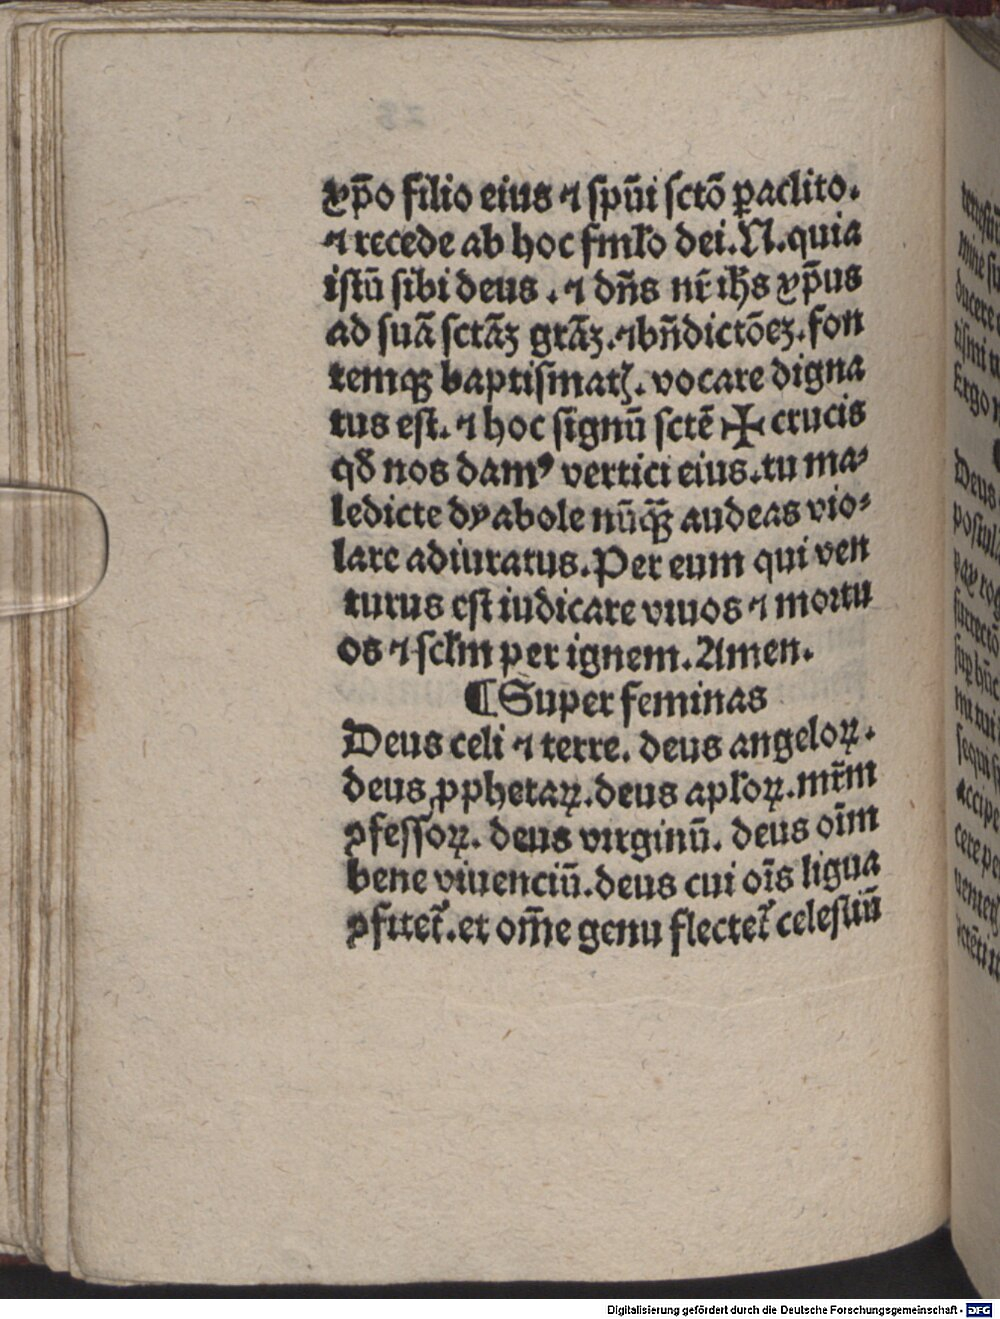 xp̄o filio eius ⁊ spūi sctō ꝑaclito.
⁊ recede ab hoc fml̄o dei. N. quia
istū sibi deus . ⁊ dn̄s nr̄ ih̄s xp̄us
ad suā sctāꝫ grāꝫ. ⁊ bn̄dictōeꝫ. fon
temqꝫ baptismatꝭ. vocare digna
tus est. ⁊ hoc signū sctē ✠ crucis
qđ nos damꝰ vertici eius. tu ma⸗
ledicte dyabole nūqꝫ̄ audeas vio⸗
lare adiuratus. Per eum qui ven
turus est iudicare viuos ⁊ mortu
os ⁊ scl̄m per ignem. Amen.
¶ Super feminas
Deus celi ⁊ terre. deus angeloꝝ.
deus ꝓphetaꝝ. deus apl̄oꝝ. mr̄m
ꝯfessoꝝ. deus virginū. deus oīm
bene viuenciū. deus cui oīs ligua
ꝯfitet᷑. et om̄e genu flectet᷑ celestiū
Digitalisierung gefördert durch die Deutsche Forschungsgemeinschaft - DFG